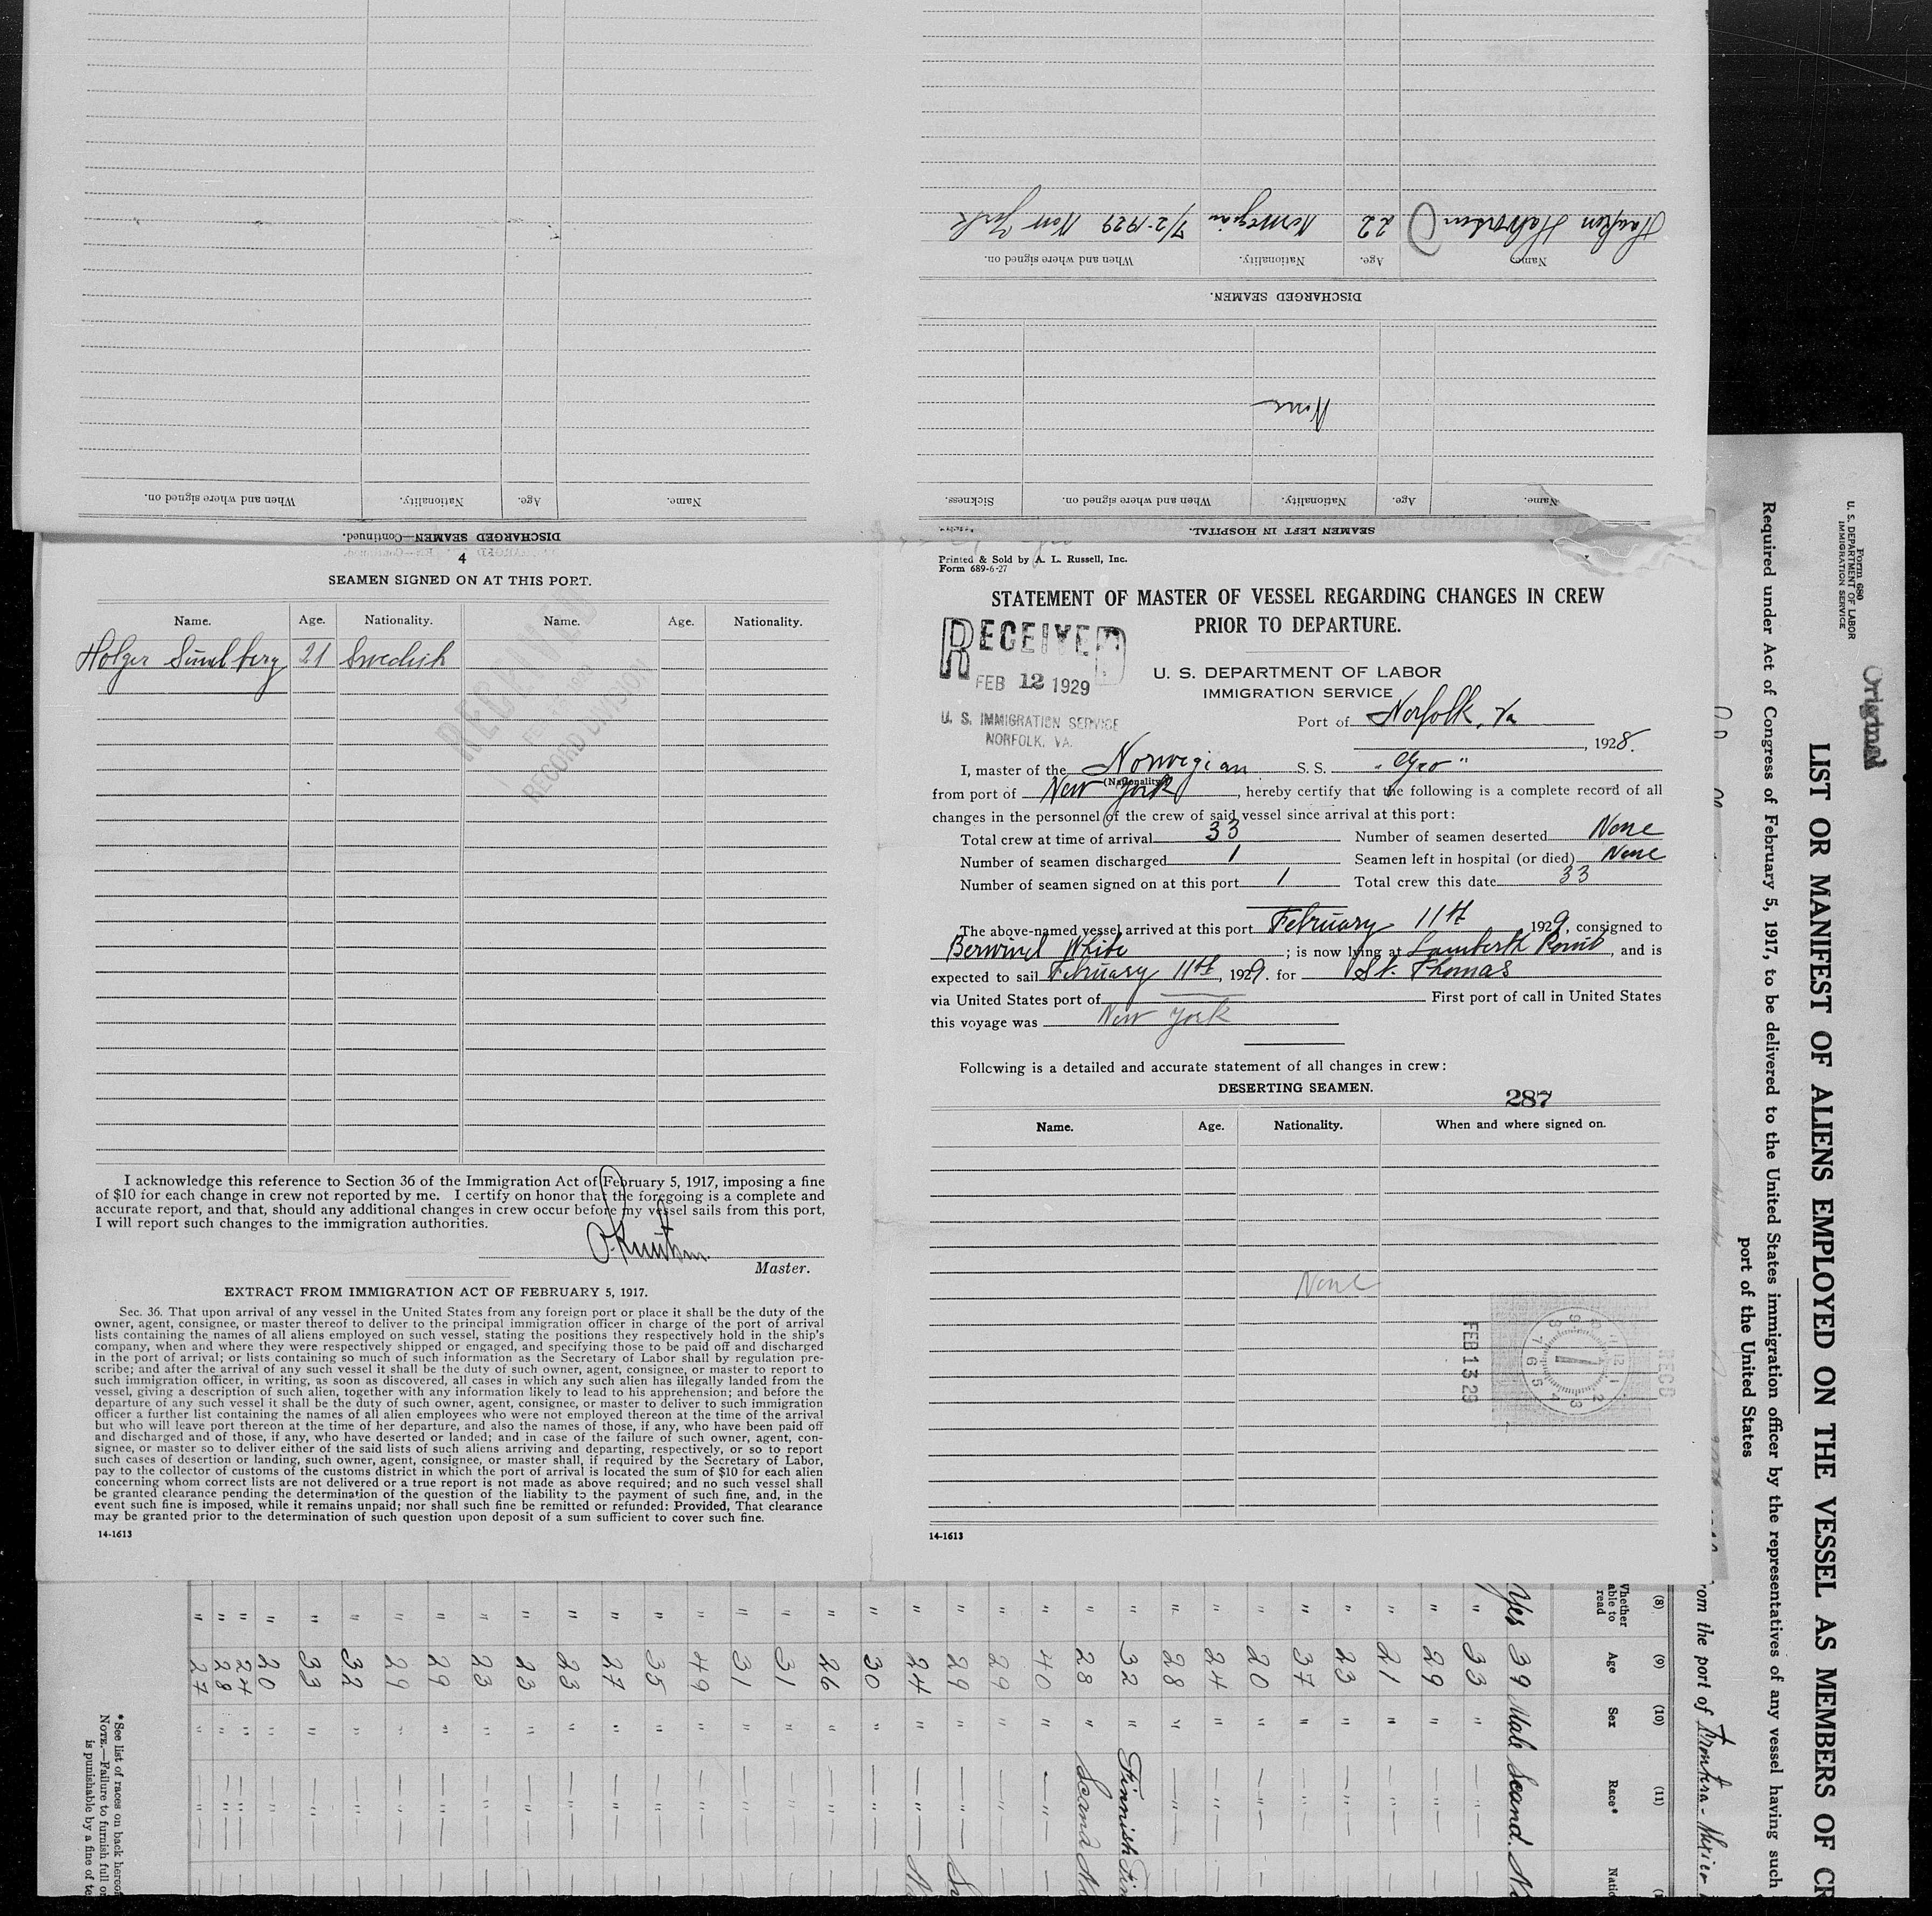 DISCHARGED SEAMEN.
Name.
Age.
Nationality.
When and where signed on.
Haakon Halvorsen 22 Norwegian 7/2-1929 New York
SEAMEN LEFT IN HOSPITAL.
Name.
Age.
Nationality.
When and where signed on.
Sickness.
None
DISCHARGED SEAMEN—Continued.
Name.
Age.
Nationality.
When and where signed on.
4
SEAMEN SIGNED ON AT THIS PORT.
Name.
Age.
Nationality.
Name.
Age.
Nationality.
Holger Sundberg 21 Swedish
RECEIVED
RECORD DIVISION
I acknowledge this reference to Section 36 of the Immigration Act of February 5, 1917, imposing a fine
of $10 for each change in crew not reported by me. I certify on honor that the foregoing is a complete and
accurate report, and that, should any additional changes in crew occur before my vessel sails from this port,
I will report such changes to the immigration authorities.
Master.
EXTRACT FROM IMMIGRATION ACT OF FEBRUARY 5, 1917.
Sec. 36. That upon arrival of any vessel in the United States from any foreign port or place it shall be the duty of the
owner, agent, consignee, or master thereof to deliver to the principal immigration officer in charge of the port of arrival
lists containing the names of all aliens employed on such vessel, stating the positions they respectively hold in the ship's
company, when and where they were respectively shipped or engaged, and specifying those to be paid off and discharged
in the port of arrival; or lists containing so much of such information as the Secretary of Labor shall by regulation pre-
scribe; and after the arrival of any such vessel it shall be the duty of such owner, agent, consignee, or master to report to
such immigration officer, in writing, as soon as discovered, all cases in which any such alien has illegally landed from the
vessel, giving a description of such alien, together with any information likely to lead to his apprehension; and before the
departure of any such vessel it shall be the duty of such owner, agent, consignee, or master to deliver to such immigration
officer a further list containing the names of all alien employees who were not employed thereon at the time of the arrival
but who will leave port thereon at the time of her departure, and also the names of those, if any, who have been paid off
and discharged and of those, if any, who have deserted or landed; and in case of the failure of such owner, agent, con-
signee, or master so to deliver either of the said lists of such aliens arriving and departing, respectively, or so to report
such cases of desertion or landing, such owner, agent, consignee, or master shall, if required by the Secretary of Labor,
pay to the collector of customs of the customs district in which the port of arrival is located the sum of $10 for each alien
concerning whom correct lists are not delivered or a true report is not made as above required; and no such vessel shall
be granted clearance pending the determination of the question of the liability to the payment of such fine, and, in the
event such fine is imposed, while it remains unpaid; nor shall such fine be remitted or refunded: Provided, That clearance
may be granted prior to the determination of such question upon deposit of a sum sufficient to cover such fine.
14-1613
Printed & Sold by A. L. Russell, Inc.
Form 689-6-27
STATEMENT OF MASTER OF VESSEL REGARDING CHANGES IN CREW
PRIOR TO DEPARTURE.
RECEIVED
FEB 12 1929
U. S. IMMIGRATION SERVICE
NORFOLK, VA.
U. S. DEPARTMENT OF LABOR
IMMIGRATION SERVICE
Port of Norfolk, Va
, 1928.
I, master of the Norwegian S. S. "Gro"
(Nationality)
from port of New York, hereby certify that the following is a complete record of all
changes in the personnel of the crew of said vessel since arrival at this port:
Total crew at time of arrival 33 Number of seamen deserted None
Number of seamen discharged 1 Seamen left in hospital (or died) None
Number of seamen signed on at this port 1 Total crew this date 33
The above-named vessel arrived at this port February 11th 1929, consigned to
Berwind White ; is now lying at Lamberth Point, and is
expected to sail February 11th, 1929. for St. Thomas
via United States port of First port of call in United States
this voyage was New York
Following is a detailed and accurate statement of all changes in crew:
DESERTING SEAMEN.
287
Name.
Age.
Nationality.
When and where signed on.
None
RECD
FEB 13 29
14-1613
Form 680
U. S. DEPARTMENT OF LABOR
IMMIGRATION SERVICE
Original
LIST OR MANIFEST OF ALIENS EMPLOYED ON THE VESSEL AS MEMBERS OF CR
Required under Act of Congress of February 5, 1917, to be delivered to the United States immigration officer by the representatives of any vessel having such
port of the United States
rom the port of Frontera - Mexico
(8)
Whether able to read
(9)
Age
(10)
Sex
(11)
Race*
Natio
Yes 39 Male Scand.
" 33 "
" 29 "
" 21 "
" 23 "
" 37 "
" 20 "
" 24 "
" 28 "
" 32 " Finnish Fin
" 28 " Scand
" 40 "
" 29 "
" 29 "
" 24 "
" 30 "
" 26 "
" 31 "
" 31 "
" 49 "
" 35 "
" 27 "
" 23 "
" 23 "
" 23 "
" 29 "
" 29 "
" 32 "
" 33 "
" 20 "
" 24 "
" 28 "
" 27 "
*See list of races on back hereof
NOTE.—Failure to furnish full or
is punishable by a fine of te